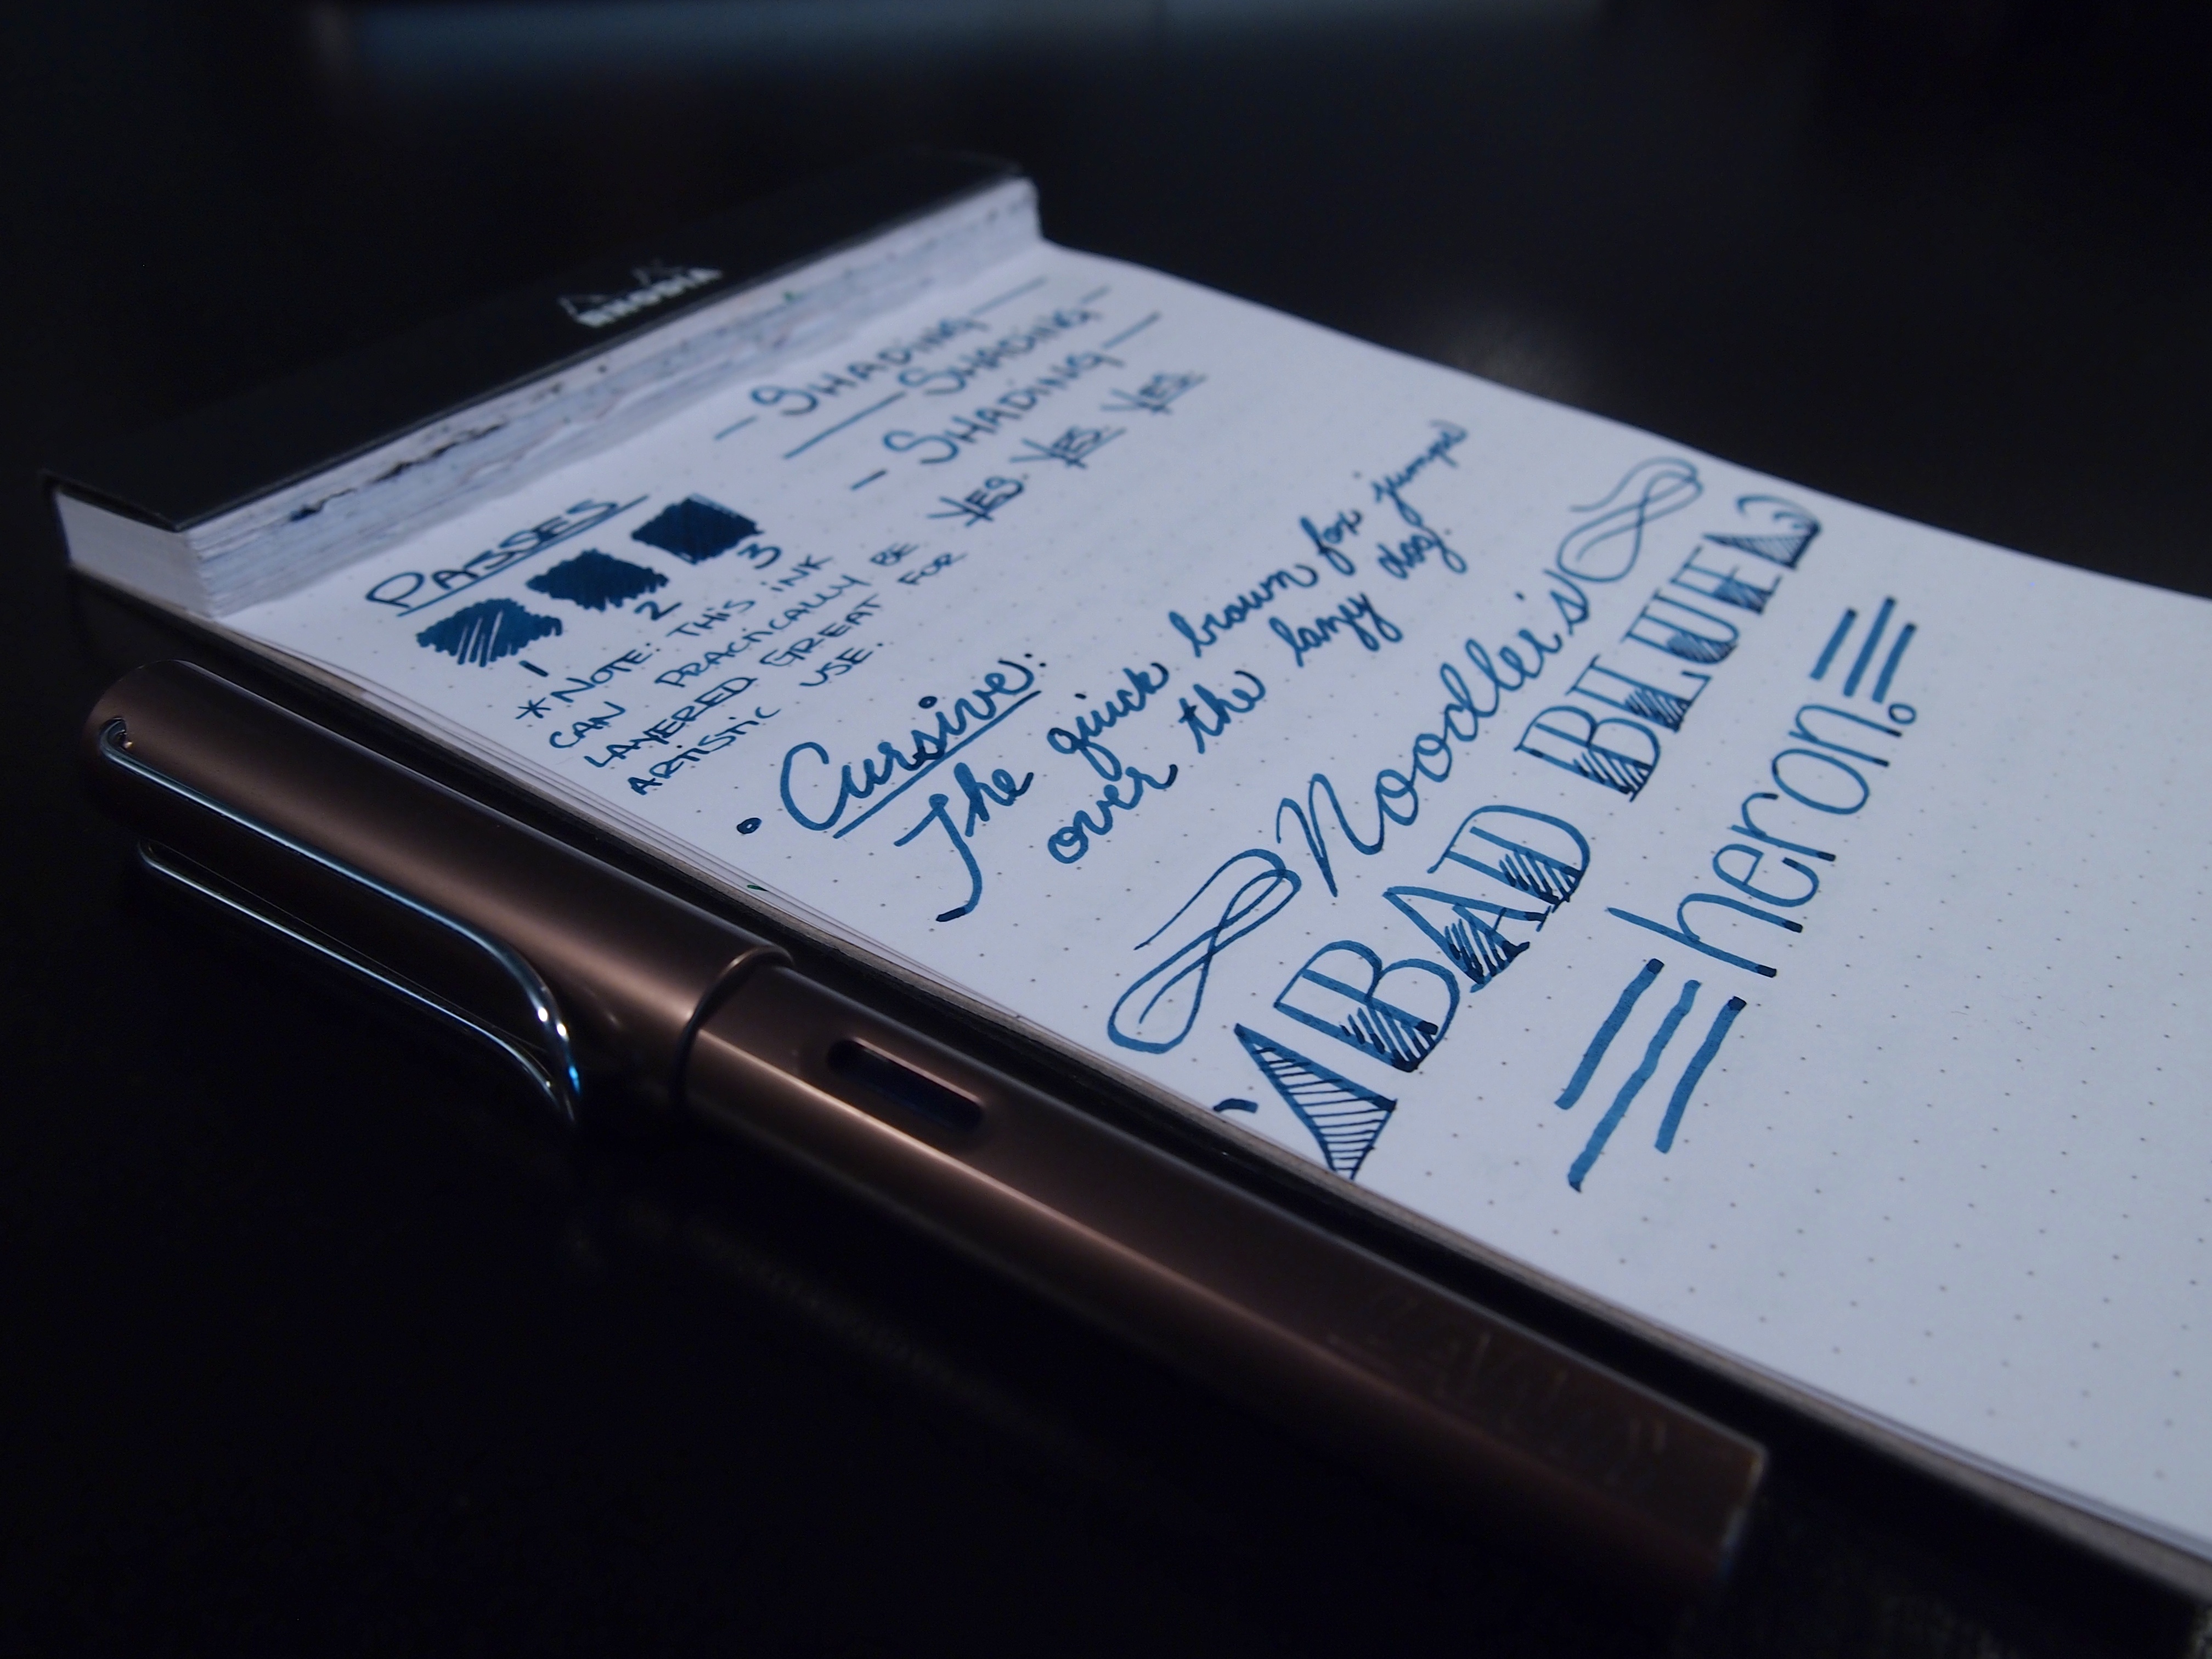 RHODIA
— SHADING —
— SHADING —
— SHADING —
YES. YES. YES.
PASSES
1 2 3
*NOTE: THIS INK
CAN PRACTICALLY BE
LAYERED GREAT FOR
ARTISTIC USE.
• Cursive:
The quick brown fox jumps
over the lazy dog.
Noodler's
'A BAD BLUE'
heron.